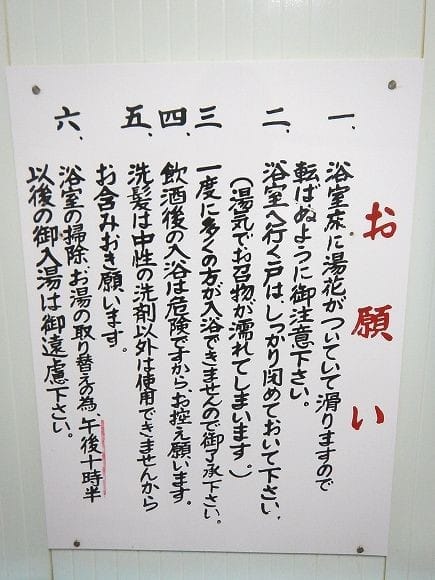 お願い
一、浴室床に湯花がついていて滑りますので
転ばぬように御注意下さい。
二、浴室へ行く戸は、しっかり閉めておいて下さい、
(湯気でお召物が濡れてしまいます。)
三、一度に多くの方が入浴できませんので御了承下さい。
四、飲酒後の入浴は危険ですから、お控え願います。
五、洗髪は中性の洗剤以外は使用できませんから
お含みおき願います。
六、浴室の掃除、お湯の取り替えの為、午後十時半
以後の御入湯は御遠慮下さい。